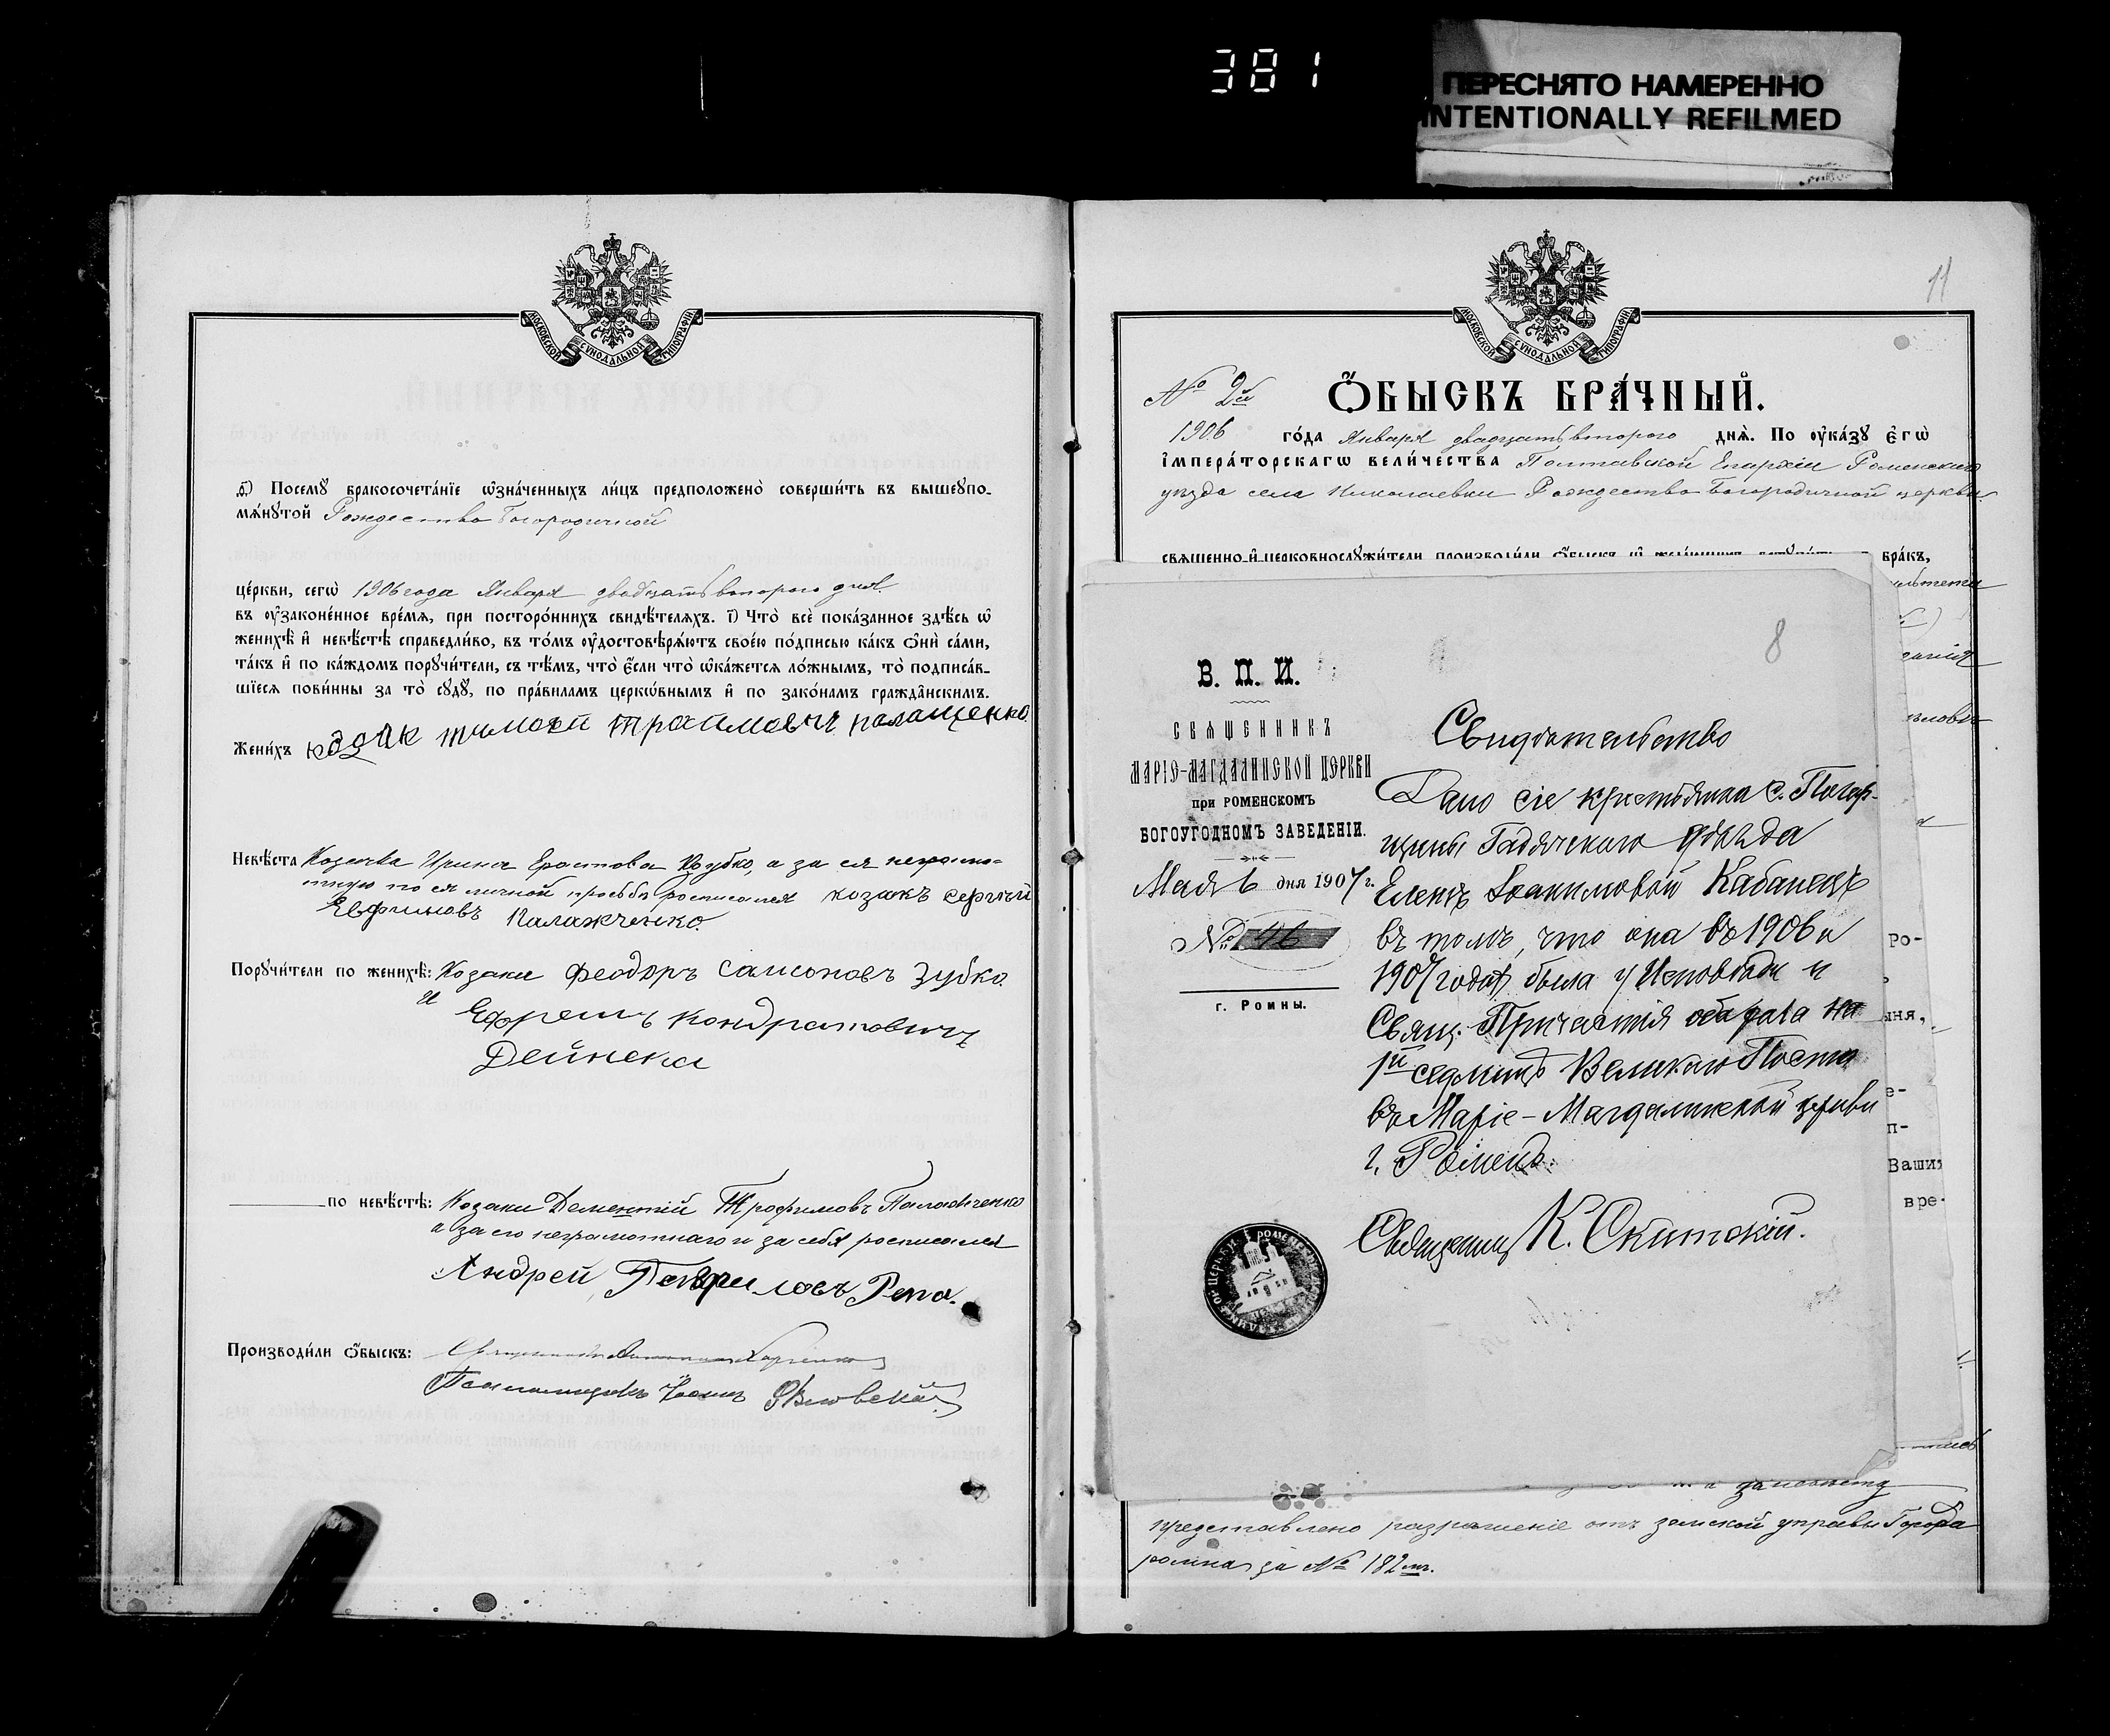 381
ПЕРЕСНЯТО НАМЕРЕННО
INTENTIONALLY REFILMED
МОСКОВСКОЙ СѴНОДАЛЬНОЙ ТИПОГРАФІИ
҂б҃) Посемꙋ̀ бракосочета́нїе ѡ҆зна́ченныхъ ли́цъ предположено̀ соверши́ть въ вышеупо-
мѧ́нꙋтой Рождество Богородичной
це́ркви, сегѡ̀ 1906 года Января двадцать второго дня
въ оу҆зако́ненное вре́мѧ, при посторо́ннихъ свидѣ́телѧхъ. і҃) Что̀ всѐ пока́занное здѣ́сь ѡ҆
женихѣ̀ и҆ невѣ́стѣ справедли́во, въ то́мъ оу҆достовѣрѧ́ютъ свое́ю по́дписью ка́къ ѻ҆нѝ са́ми,
та́къ и҆ по ка́ждомъ порꙋчи́тели, съ тѣ́мъ, что̀ є҆́сли что̀ ѡ҆ка́жетсѧ ло́жнымъ, то̀ подписа́в-
шїесѧ пови́нны за то̀ сꙋдꙋ̀, по пра́виламъ церко́внымъ и҆ по зако́намъ гражда́нскимъ.
Жени́хъ козак тимофи трохимовыч палащенко
Невѣ́ста Козачка Ирина Ерастова Зубко, а за ея неграмо-
тную по ея личной просьбѣ росписался козакъ сергѣй
Евфимовъ Палажченко
Порꙋчи́тели по женихѣ̀: Козаки Феодоръ Самсоновъ Зубко
и Ефремъ Кондратовичъ
Дейнека
по невѣ́стѣ: Козаки Дементій Трофимовъ Палажченко
а за его неграмотнаго и за себя росписался
Андрей Гаврыловъ Репа.
Производи́ли ѻ҆́быскъ:
Псаломщикъ
11
№ 2й
Ѻ҆́БЫСКЪ БРА́ЧНЫЙ.
1906 го́да Января двадцать второго днѧ̀. По оу҆ка́зꙋ є҆гѡ̀
і҆мпера́торскагѡ вели́чества Полтавской Епархіи Роменскаго
уѣзда села Николаевки Рождество Богородичной церкви
свѧще́нно и҆ церковнослꙋжи́тели производи́ли ѻ҆́быскъ ѡ҆ жела́ющихъ бра́къ,
8
В. П. И.
СВЯЩЕННИКЪ
МАРІЕ-МАГДАЛИНСКОЙ ЦЕРКВИ
при РОМЕНСКОМЪ
БОГОУГОДНОМЪ ЗАВЕДЕНІИ.
Мая 6 дня 1907 г.
№ 46
г. Ромны.
Свидѣтельство
Дано сіе крестьянкѣ с. Погар-
щины Гадячскаго уѣзда
Еленѣ Іоакимовой Кабанецъ
въ томъ, что она въ 1906 и
1907 годахъ была у Исповѣди и
Свящ. Причастія оба раза на
1й седмицѣ Великаго Поста
въ Маріе-Магдалинской церкви
г. Роменъ.
Священникъ К. Скитскій.
Ро-
ыня,
е-
п-
Ваши
вре-
представлено разрѣшеніе отъ земской управы Города
ромна за № 182мъ.